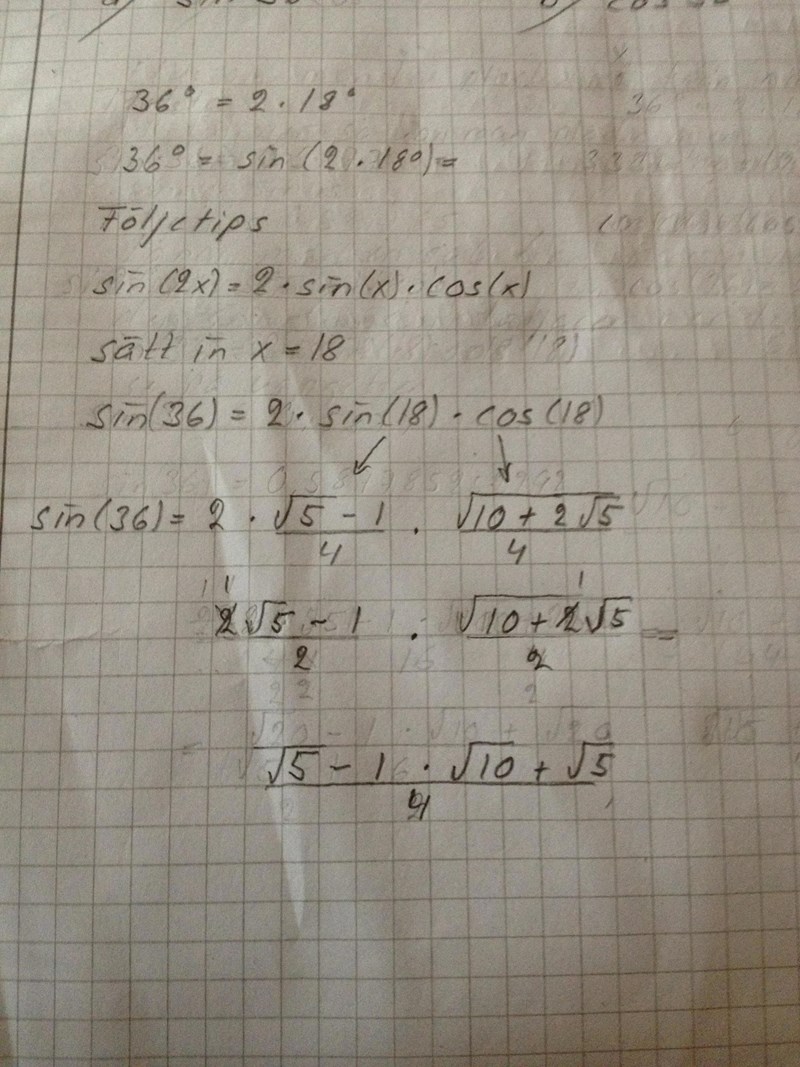 36° = 2 · 18°
36° = sin (2 · 18°) =
Följetips
sin(2x) = 2 · sin(x) · cos(x)
sätt in x = 18
sin(36) = 2 · sin(18) · cos(18)
sin(36) = 2 · (√5 - 1)/4 · √(10 + 2√5)/4
1 1 1
2√5 - 1/2 · √10 + 2√5/2 =
= √5 - 1 · √10 + √5/4